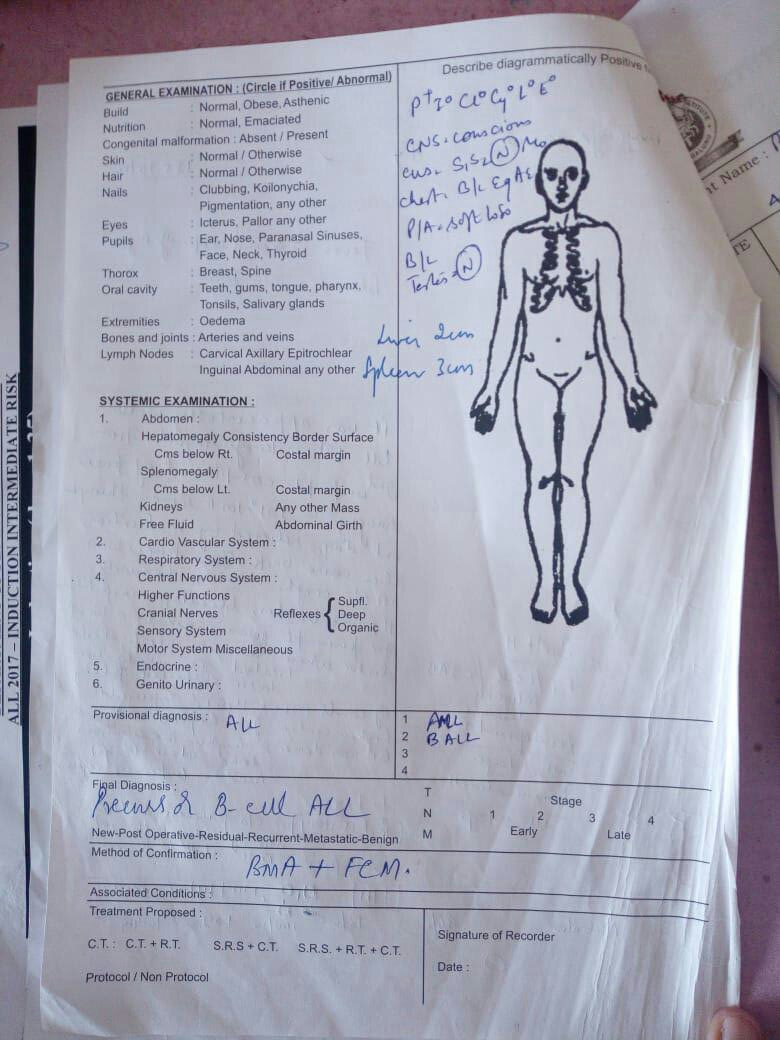 GENERAL EXAMINATION : (Circle if Positive/ Abnormal)
Build : Normal, Obese, Asthenic
Nutrition : Normal, Emaciated
Congenital malformation : Absent / Present
Skin : Normal / Otherwise
Hair : Normal / Otherwise
Nails : Clubbing, Koilonychia,
Pigmentation, any other
Eyes : Icterus, Pallor any other
Pupils : Ear, Nose, Paranasal Sinuses,
Face, Neck, Thyroid
Thorox : Breast, Spine
Oral cavity : Teeth, gums, tongue, pharynx,
Tonsils, Salivary glands
Extremities : Oedema
Bones and joints : Arteries and veins
Lymph Nodes : Carvical Axillary Epitrochlear
Inguinal Abdominal any other
SYSTEMIC EXAMINATION :
1. Abdomen :
Hepatomegaly Consistency Border Surface
Cms below Rt. Costal margin
Splenomegaly
Cms below Lt. Costal margin
Kidneys Any other Mass
Free Fluid Abdominal Girth
2. Cardio Vascular System :
3. Respiratory System :
4. Central Nervous System :
Higher Functions
Cranial Nerves Reflexes { Supfl.
Deep
Organic
Sensory System
Motor System Miscellaneous
5. Endocrine :
6. Genito Urinary :
Describe diagrammatically Positive
P+ I° Cl° Cy° L° E°
CNS - conscious
CVS - S1S2 N Mo
Chest - B/L Eq AE
P/A - soft
B/L
Testes - N
Liver 2cm
Spleen 3cm
Provisional diagnosis : ALL
1 AML
2 B ALL
3
4
Final Diagnosis :
Precursor B-cell ALL
New-Post Operative-Residual-Recurrent-Metastatic-Benign
T Stage
N 1 2 3 4
M Early Late
Method of Confirmation :
BMA + FCM.
Associated Conditions :
Treatment Proposed :
C.T. : C.T. + R.T. S.R.S + C.T. S.R.S. + R.T. + C.T.
Protocol / Non Protocol
Signature of Recorder
Date :
ALL 2017 – INDUCTION INTERMEDIATE RISK
nt Name :